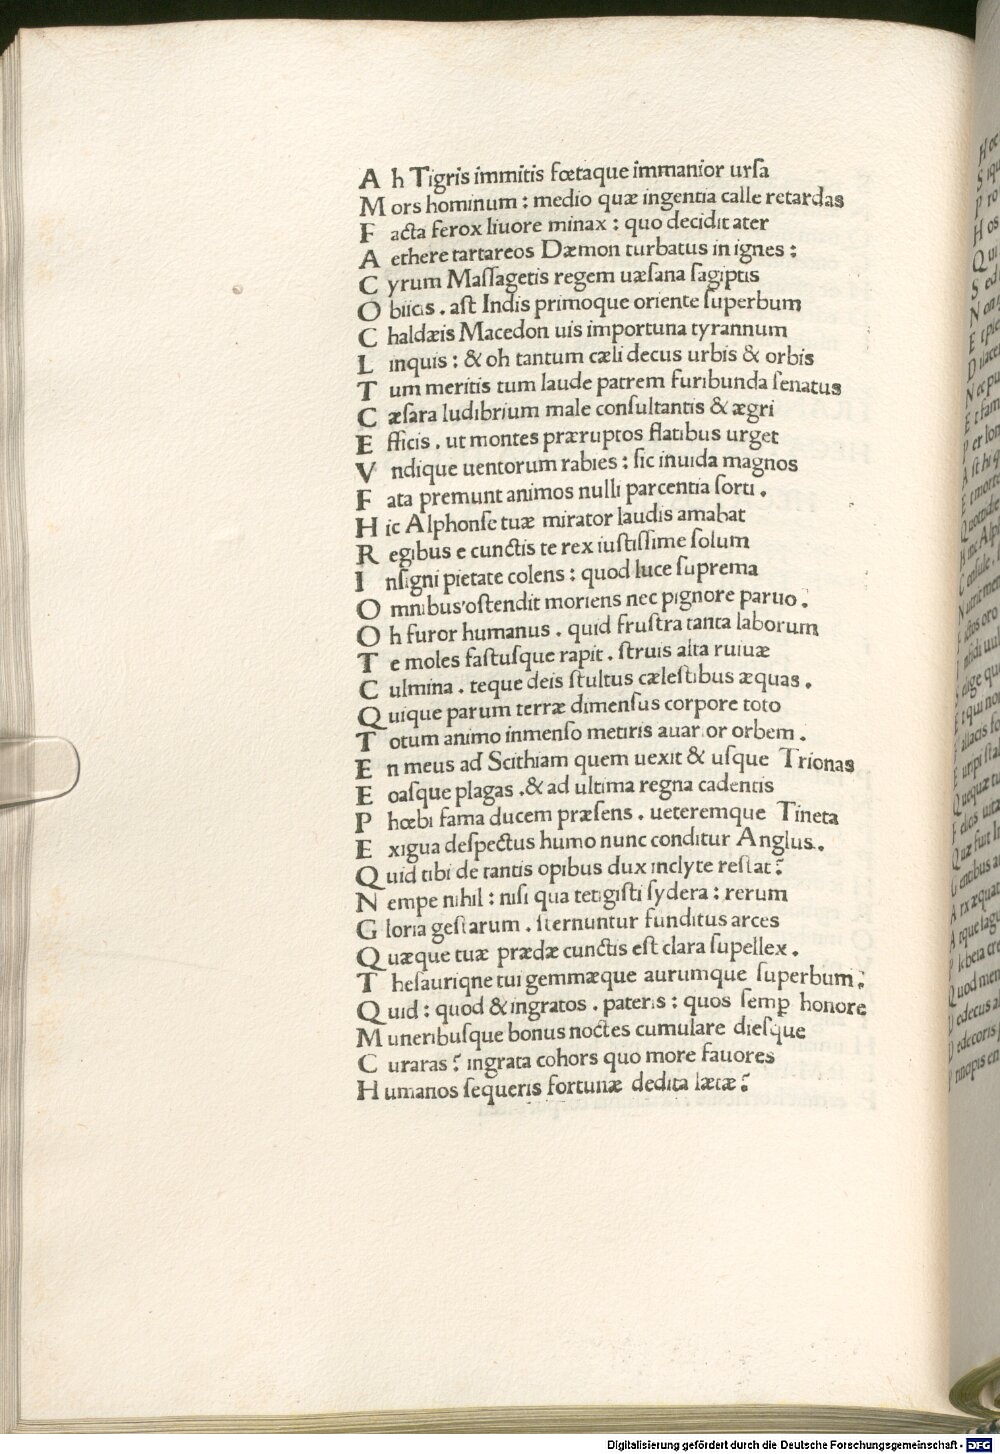 A h Tigris immitis fœtaque immanior ursa
M ors hominum : medio quæ ingentia calle retardas
F acta ferox liuore minax : quo decidit ater
A ethere tartareos Dæmon turbatus in ignes :
C yrum Massagetis regem uæsana sagiptis
O biicis . ast Indis primoque oriente superbum
C haldæis Macedon uis importuna tyrannum
L inquis : & oh tantum cæli decus urbis & orbis
T um meritis tum laude patrem furibunda senatus
C æsara ludibrium male consultantis & ægri
E fficis . ut montes præruptos flatibus urget
V ndique uentorum rabies : sic inuida magnos
F ata premunt animos nulli parcentia sorti .
H ic Alphonse tuæ mirator laudis amabat
R egibus e cunctis te rex iustissime solum
I nsigni pietate colens : quod luce suprema
O mnibus ostendit moriens nec pignore paruo .
O h furor humanus . quid frustra tanta laborum
T e moles fastusque rapit . struis alta ruiuæ
C ulmina . teque deis stultus cælestibus æquas .
Q uique parum terræ dimensus corpore toto
T otum animo inmenso metiris auarior orbem .
E n meus ad Scithiam quem uexit & usque Trionas
E oasque plagas . & ad ultima regna cadentis
P hœbi fama ducem præsens . ueteremque Tineta
E xigua despectus humo nunc conditur Anglus .
Q uid tibi de tantis opibus dux inclyte restat ?
N empe nihil : nisi qua tetigisti sydera : rerum
G loria gestarum . sternuntur funditus arces
Q uæque tuæ prædæ cunctis est clara supellex .
T hesauriqne tui gemmæque aurumque superbum ;
Q uid : quod & ingratos . pateris : quos semꝑ honore
M uneribusque bonus noctes cumulare diesque
C uraras ? ingrata cohors quo more fauores
H umanos sequeris fortunæ dedita lætæ ?
Digitalisierung gefördert durch die Deutsche Forschungsgemeinschaft - DFG